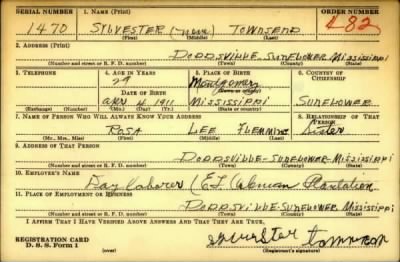 SERIAL NUMBER 1. NAME (Print) ORDER NUMBER
1470 SYLVESTER (none) TOWNSEND 482
(First) (Middle) (Last)
2. ADDRESS (Print)
DODDSVILLE - SUNFLOWER MISSISSIPPI
(Number and street or R. F. D. number) (Town) (County) (State)
3. TELEPHONE 4. AGE IN YEARS 5. PLACE OF BIRTH 6. COUNTRY OF CITIZENSHIP
29 Montgomery
DATE OF BIRTH (Town or county)
APR 4 1911 MISSISSIPPI SUNFLOWER
(Exchange) (Number) (Mo.) (Day) (Yr.) (State or country)
7. NAME OF PERSON WHO WILL ALWAYS KNOW YOUR ADDRESS 8. RELATIONSHIP OF THAT PERSON
ROSA LEE FLEMMING Sister
(Mr., Mrs., Miss) (First) (Middle) (Last)
9. ADDRESS OF THAT PERSON
DODDSVILLE - SUNFLOWER - MISSISSIPPI
(Number and street or R. F. D. number) (Town) (County) (State)
10. EMPLOYER'S NAME
Day Laborer Plantation
11. PLACE OF EMPLOYMENT OR BUSINESS
DODDSVILLE - SUNFLOWER, MISSISSIPPI
(Number and street or R. F. D. number) (Town) (County) (State)
I AFFIRM THAT I HAVE VERIFIED ABOVE ANSWERS AND THAT THEY ARE TRUE.
REGISTRATION CARD
D. S. S. Form 1 (over) (Registrant's signature)